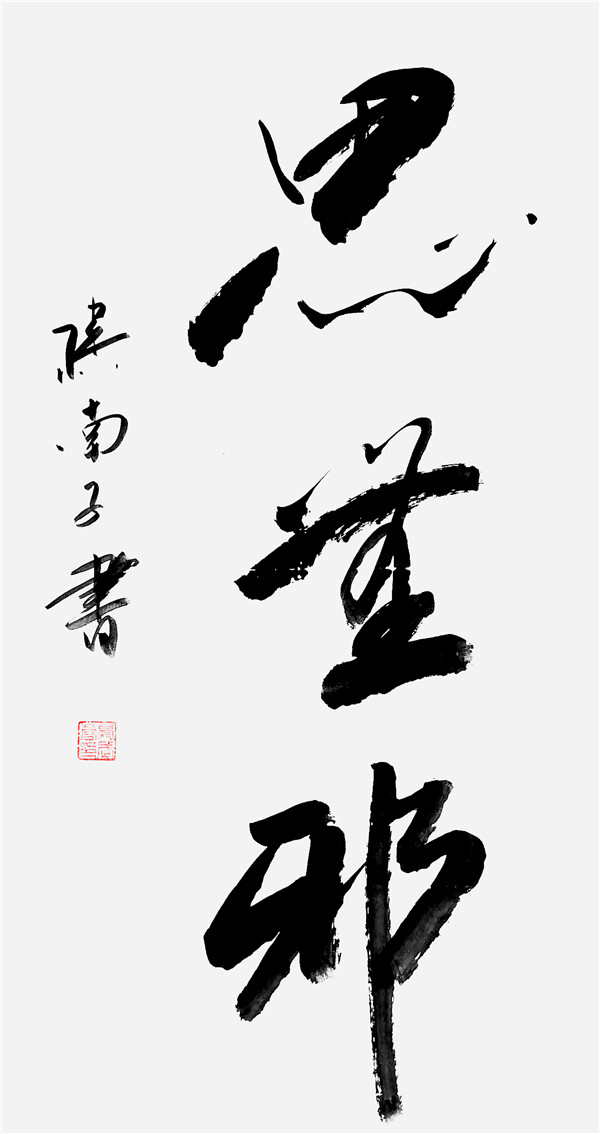 思無邪
南子書